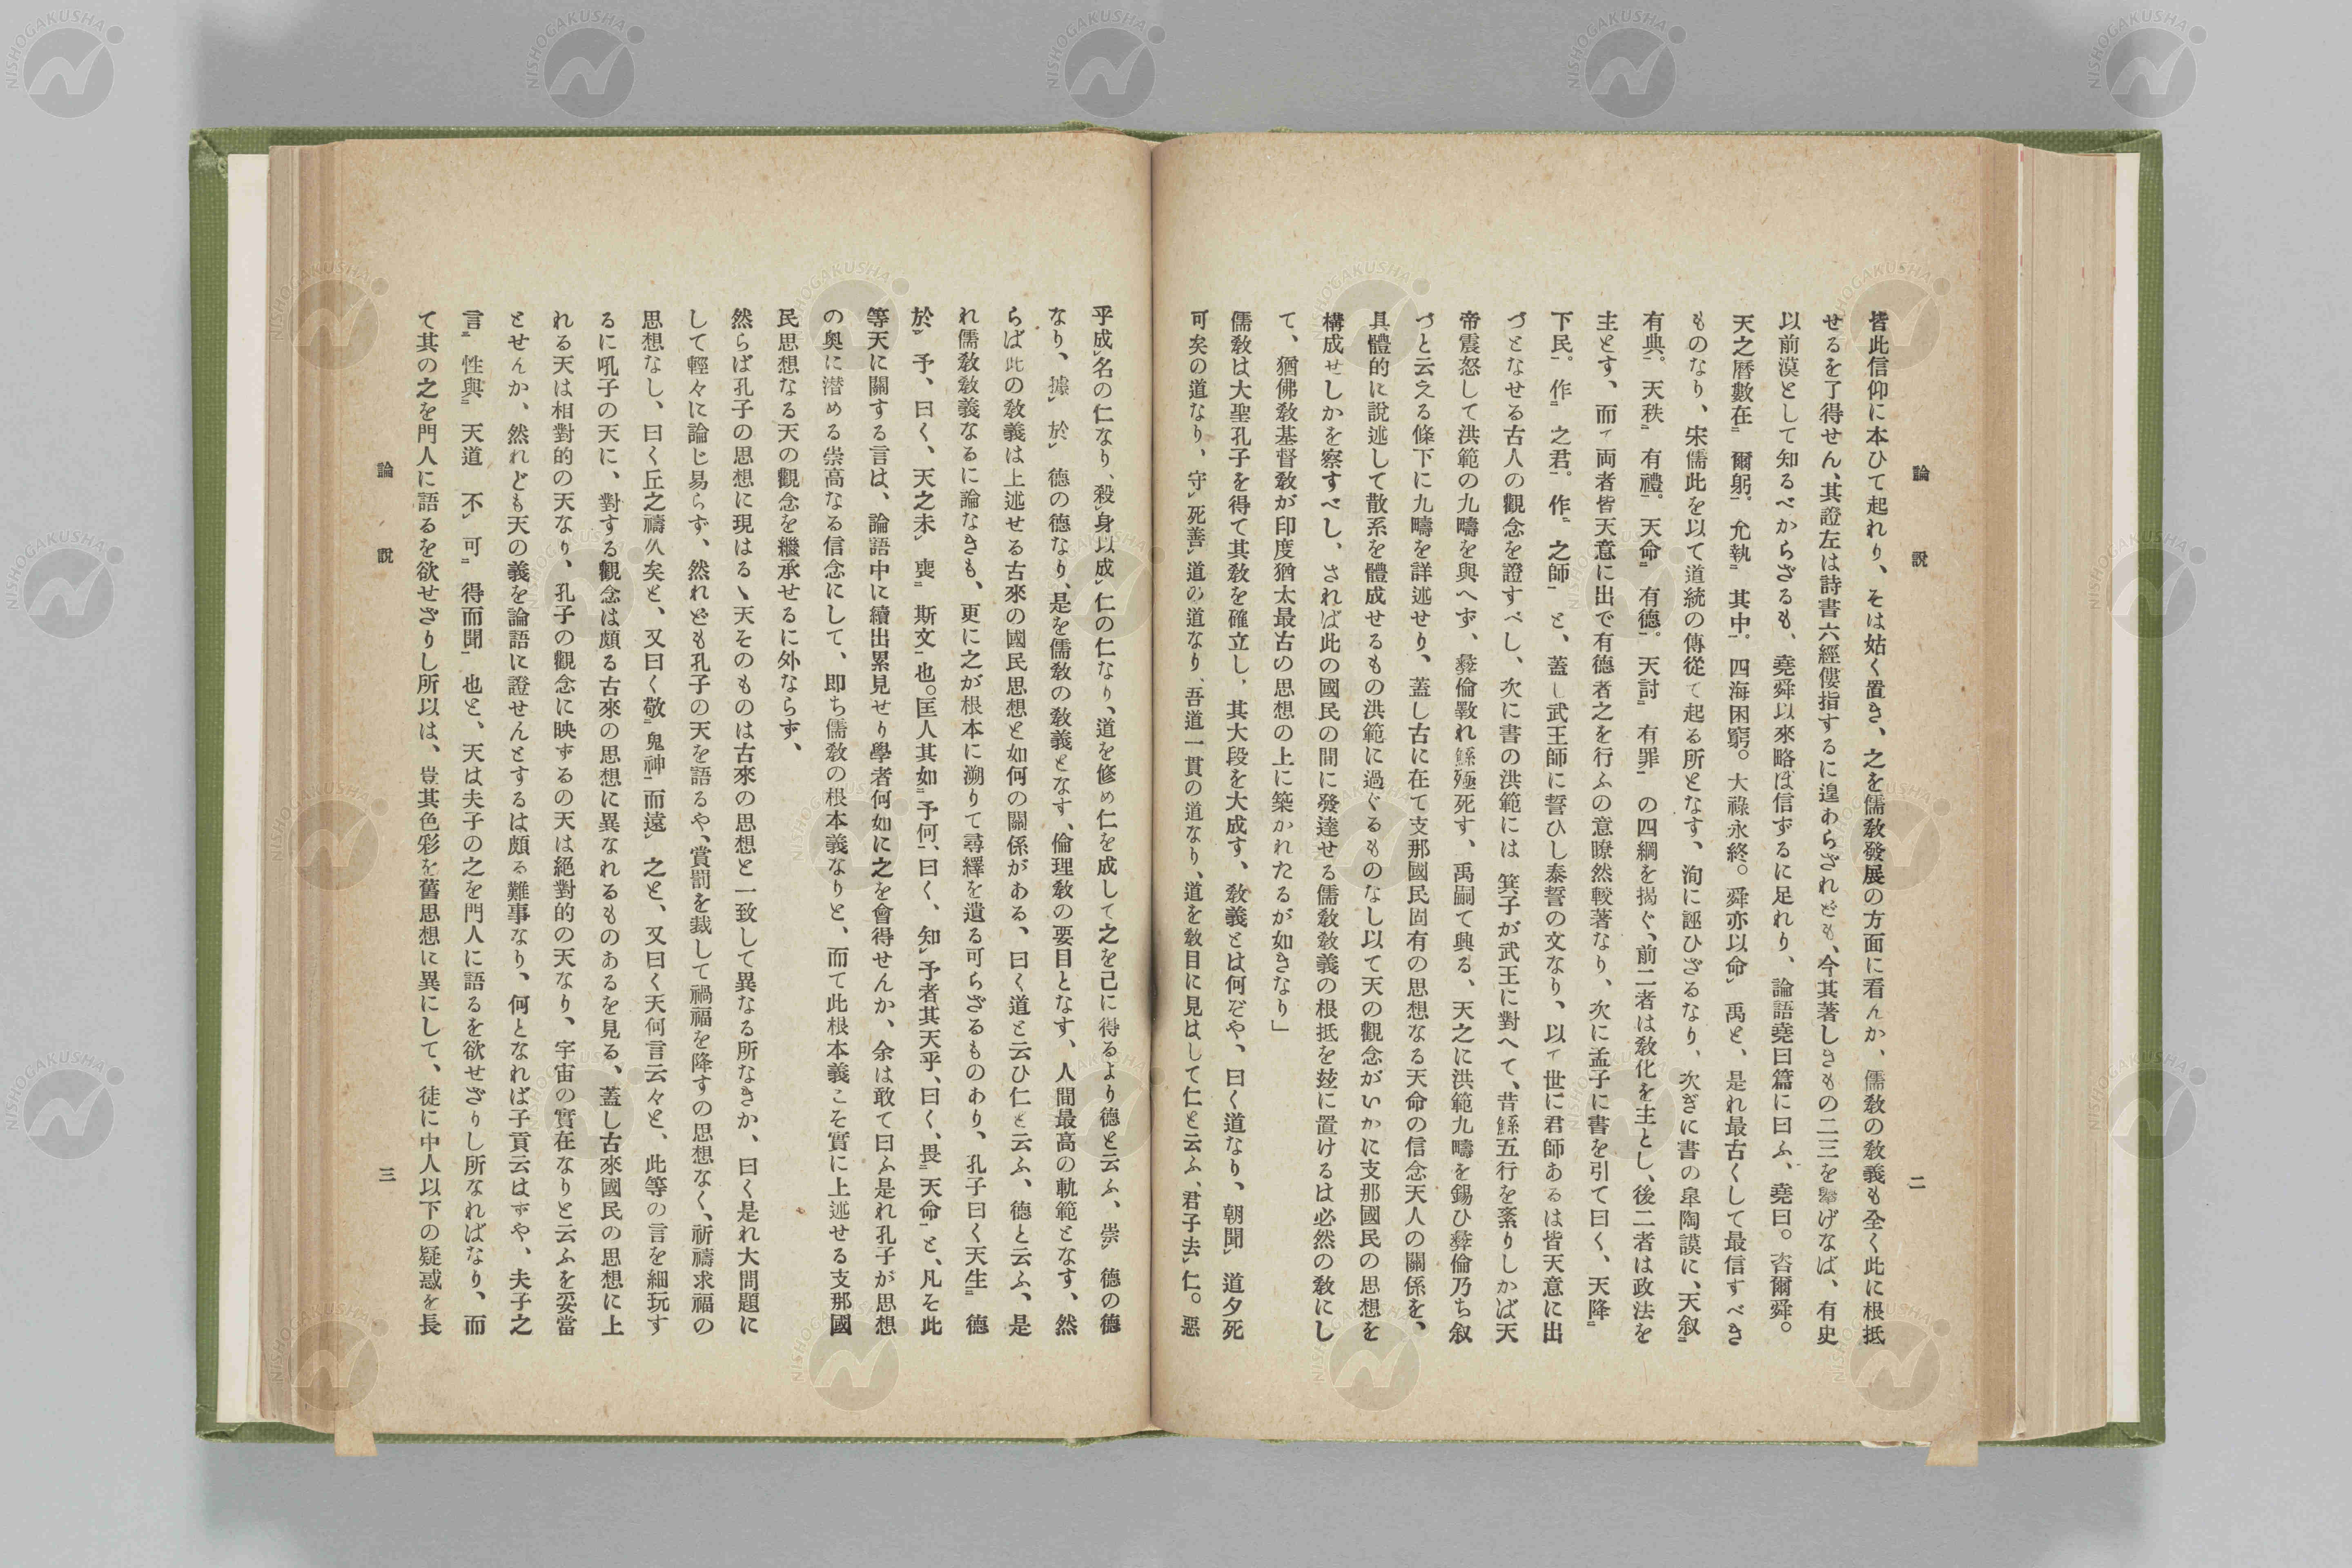 論説
二
皆此信仰に本ひて起れり、そは姑く置き、之を儒教發展の方面に看んか、儒敎の敎義も全く此に根抵
せるを了得せん、其證左は詩書六經僂指するに遑あらざれども、今其著しきもの二三を擧げなば、有史
以前漠として知るべからざるも、堯舜以來略ぼ信ずるに足れり、論語堯曰篇に曰ふ、堯曰。咨爾舜。
天之曆數在㆓爾躬㆒。允執㆓其中㆒。四海困窮。大祿永終。舜亦以命㆑禹と、是れ最古くして最信すべき
ものなり、宋儒此を以て道統の傳從て起る所となす、洵に誣ひざるなり、次ぎに書の皐陶謨に、天叙㆓
有典㆒。天秩㆓有禮㆒。天命㆓有德㆒。天討㆓有罪㆒の四綱を揭ぐ、前二者は敎化を主とし、後二者は政法を
主とす、而て両者皆天意に出で有德者之を行ふの意瞭然較著なり、次に孟子に書を引て曰く、天降㆓
下民㆒。作㆓之君㆒。作㆓之師㆒と、蓋し武王師に誓ひし泰誓の文なり、以て世に君師あるは皆天意に出
づとなせる古人の觀念を證すべし、次に書の洪範には箕子が武王に對へて、昔鯀五行を紊りしかば天
帝震怒して洪範の九疇を與へず、彜倫斁れ鯀殛死す、禹嗣て興る、天之に洪範九疇を錫ひ彜倫乃ち叙
づと云える條下に九疇を詳述せり、蓋し古に在て支那國民固有の思想なる天命の信念天人の關係を、
具體的に說述して散系を體成せるもの洪範に過ぐるものなし以て天の觀念がいかに支那國民の思想を
構成せしかを察すべし、されば此の國民の間に發達せる儒敎敎義の根抵を玆に置けるは必然の敎にし
て、猶佛敎基督敎が印度猶太最古の思想の上に築かれたるが如きなり」
儒敎は大聖孔子を得て其敎を確立し、其大段を大成す、敎義とは何ぞや、曰く道なり、朝聞㆑道夕死
可矣の道なり、守㆑死善㆑道の道なり、吾道一貫の道なり、道を敎目に見はして仁と云ふ、君子去㆑仁。惡
乎成㆑名の仁なり、殺㆑身以成㆑仁の仁なり、道を修め仁を成して之を己に得るより德と云ふ、崇㆑德の德
なり、據㆑於㆑德の德なり、是を儒敎の敎義となす、倫理敎の要目となす、人間最高の軌範となす、然
らば此の敎義は上述せる古來の國民思想と如何の關係がある、曰く道と云ひ仁と云ふ、德と云ふ、是
れ儒敎敎義なるに論なきも、更に之が根本に溯りて尋繹を遺る可らざるものあり、孔子曰く天生㆓德
於㆑予、曰く、天之未㆑喪㆓斯文㆒也。匡人其如㆓予何㆒、曰く、知㆑予者其天乎、曰く、畏㆓天命㆒と、凡そ此
等天に關する言は、論語中に續出累見せり學者何如に之を會得せんか、余は敢て曰ふ是れ孔子が思想
の奥に潛める崇高なる信念にして、卽ち儒敎の根本義なりと、而て此根本義こそ實に上述せる支那國
民思想なる天の觀念を繼承せるに外ならず、
然らば孔子の思想に現はるゝ天そのものは古來の思想と一致して異なる所なきか、曰く是れ大問題に
して輕々に論じ易らず、然れども孔子の天を語るや、賞罰を裁して禍福を降すの思想なく、祈禱求福の
思想なし、曰く丘之禱久矣と、又曰く敬㆓鬼神㆒而遠㆑之と、又曰く天何言云々と、此等の言を細玩す
るに吼子の天に、對する觀念は頗る古來の思想に異なれるものあるを見る、蓋し古來國民の思想に上
れる天は相對的の天なり、孔子の觀念に映ずるの天は絕對的の天なり、宇宙の實在なりと云ふを妥當
とせんか、然れども天の義を論語に證せんとするは頗る難事なり、何となれば子貢云はずや、夫子之
言㆓性與㆓天道不㆑可㆓得而聞㆒也と、天は夫子の之を門人に語るを欲せざりし所なればなり、而
て其の之を門人に語るを欲せざりし所以は、豈其色彩を舊思想に異にして、徒に中人以下の疑惑を長
論説
三
NISHOGAKUSHA